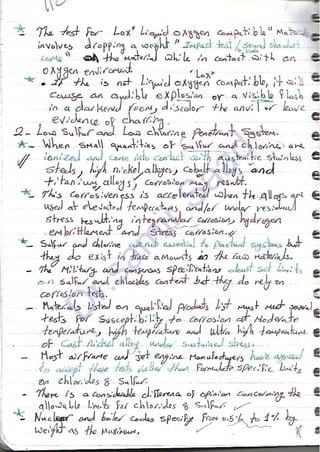 - The test For LOX "Liquid Oxygen Compatible" Material
involves dropping a weight "Impact test
" on the Material while in contact with an
oxygen enviroment.
"LOX"
* If the is not Liquid oxygen Compatible, it will
Cause an audible explosion or a visible Flash
in a darkened room, discolor the anvil or leave
evidence of charring.
2- Low Sulfur and Low chlorine penetrant System.
* - When small quantities of sulfur and chlorine are
ionized and come into contact with austenitic stainless
Steels, high nickel, alloyes, cobalt alloys and
titanium, alloys, corrosion may result.
* - This corrosiveness is accelerated when the alloys are
used at elevated temperatures and/or under residual
stress resulting integranular corrosion, hydrogen
embrittlement and stress corrosion.
- Sulfur and chlorine are not essential to penetrant systems but
they do exist in trace amounts in the raw materials.
- The Military and consensus specifications do not set limits
on sulfur and chlorides content but they do rely on
corrosion tests.
- Materials listed on qualified products list must meet several
tests for susceptibility to corrosion at Moderate
temperature, high temperature and Ultra high temperature
of Cast nickel alloy under sustained stress.
- Most airframe and jet engine Manufacturers have agreed
to accept these tests rather than formulate specific limits
on chlorides & Sulfur.
- There is a considerable difference of opinion concerning the
allowable limits for chlorides & Sulfur.
* - Nuclear and boiler codes specify from 0.5% to 1% by
weight as the Maximum.